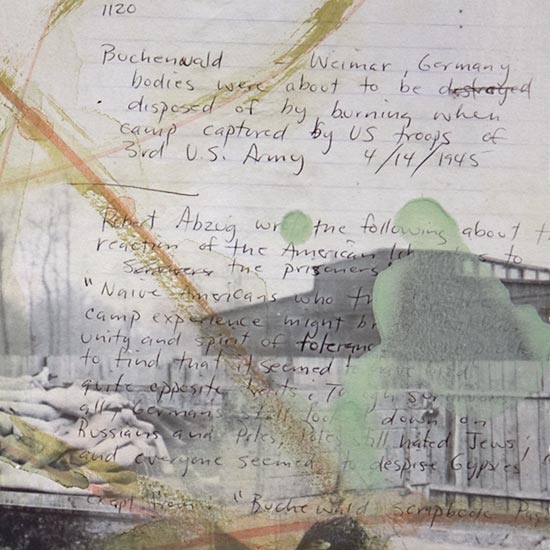 1120
Buchenwald - Weimar, Germany
bodies were about to be destroyed
disposed of by burning when
camp captured by US troops of
3rd U.S. Army 4/14/1945
Robert Abzug the following about
reaction of the American to
the prisoners'
"Naive Americans who
camp experience might
unity and spirit of tolerance
to find that it seemed to have
quite opposite
all Germans still down on
Russians and Poles; Poles still hated Jews;
and everyone seemed to despise Gypsies"
"Buchewald scrapbook